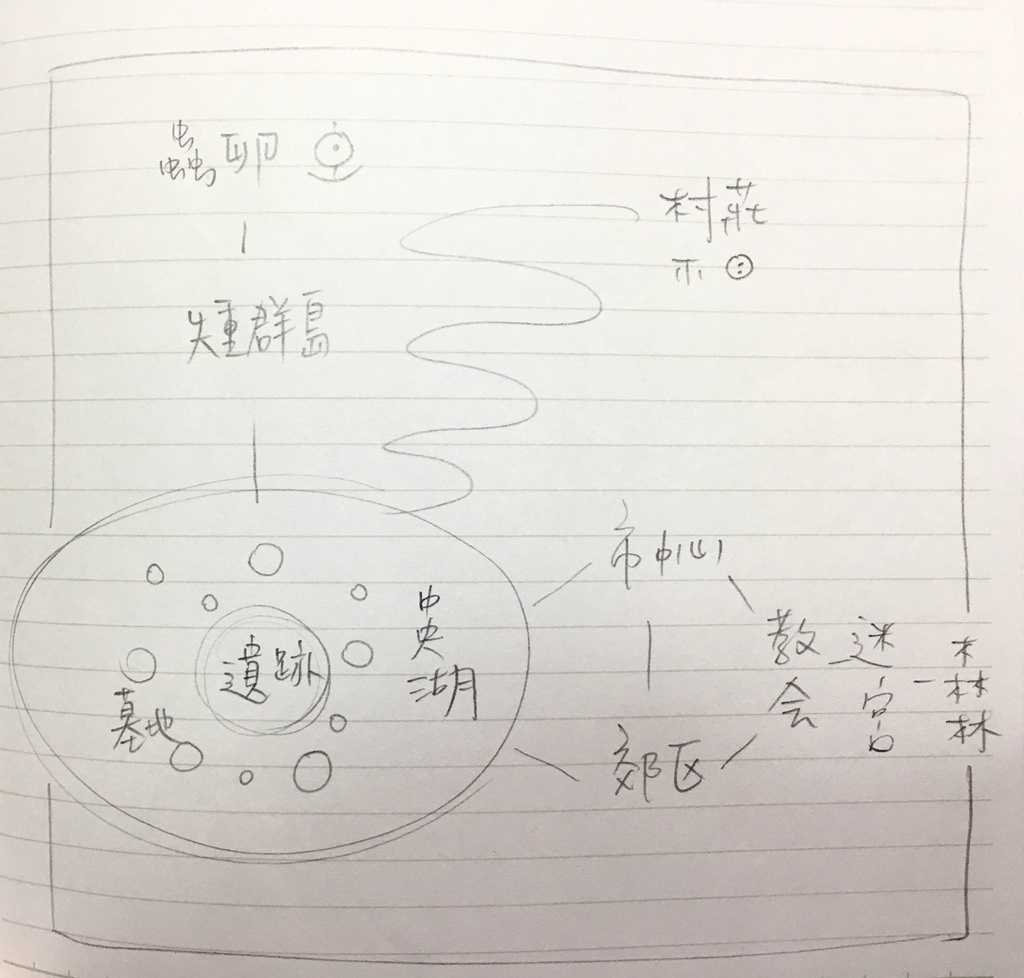 蟲
村莊
失重群島
市中心
中央湖
遺跡
墓地
教会
迷宮
森林
郊区